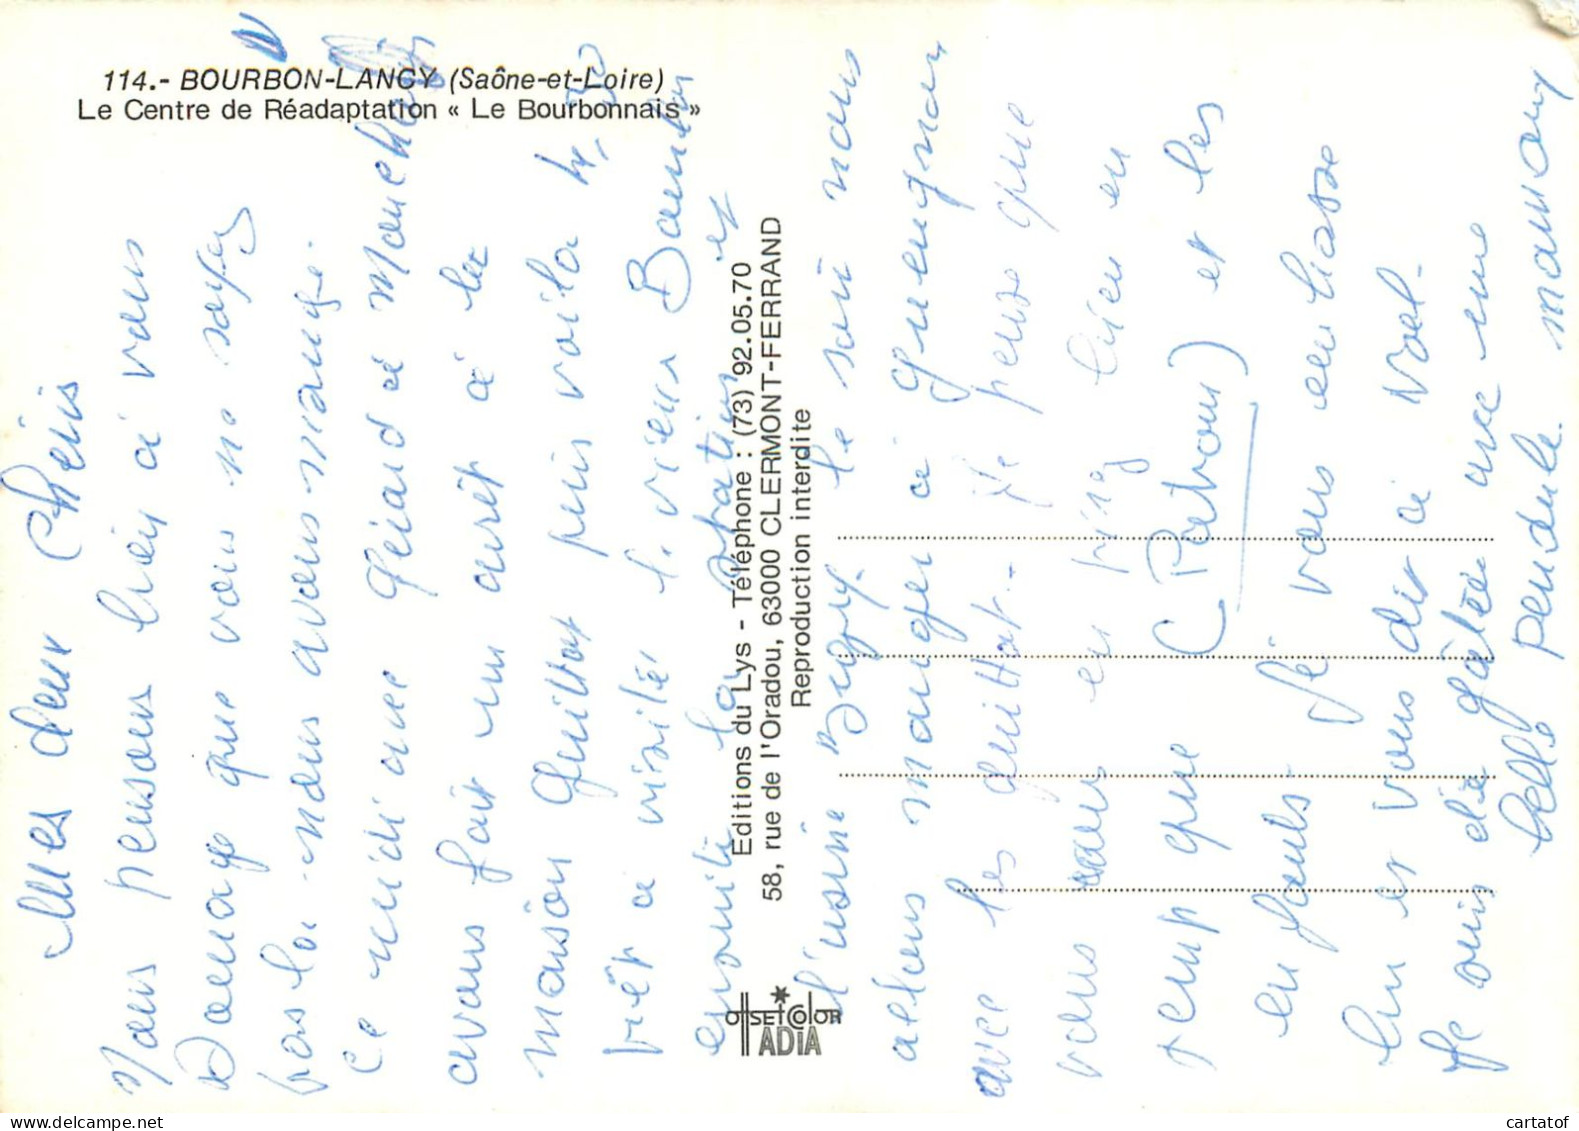 114.- BOURBON-LANCY (Saône-et-Loire)
Le Centre de Réadaptation « Le Bourbonnais »
Editions du Lys - Téléphone : (73) 92.05.70
58, rue de l'Oradou, 63000 CLERMONT-FERRAND
Reproduction interdite
OFFSET COLOR
ADIA
Mes deux Chéris
Nous pensons bien à vous
Domage que vous ne soyez
pas là. nous avons mangé
ce midi avec Gérard à
avons fait un arrêt à la
maison Guillot puis voila
prêt à visiter le vieux Bourbon
ensuite la station et
l'usine Puzy. le soir nous
allons manger à Gueugnon
avec les Guillot. Je pense que
vous vous en bien en
temp que (Patrou) et les
enfants. Je vous embrasse
bien et vous dit à Noel.
Je suis été gâtée avec une
belle pendule. mamany
cartatof
www.delcampe.net